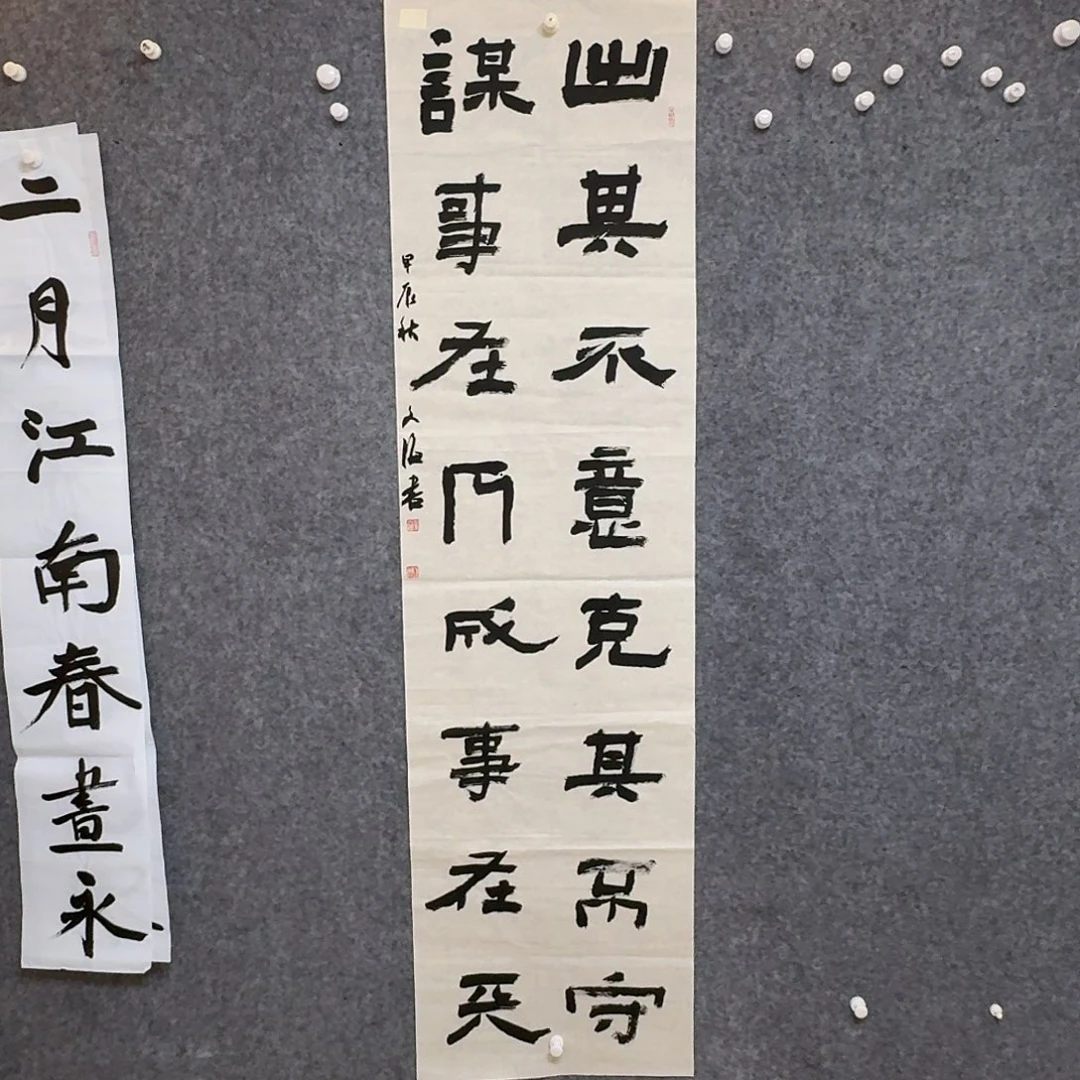 出其不意克其不守
謀事在人成事在天
甲辰秋 文海书
二月江南春晝永